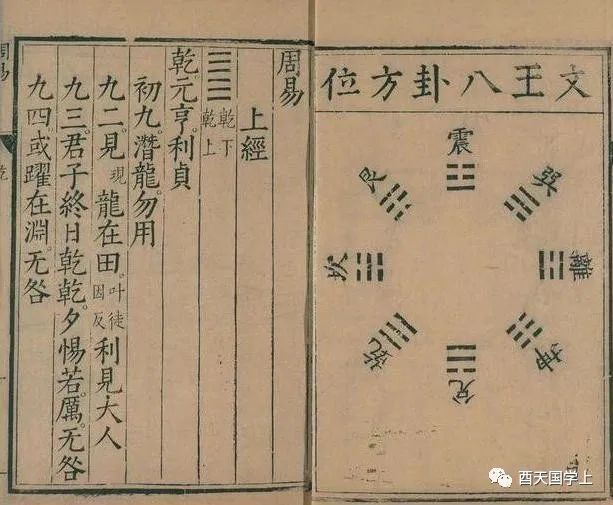 文王八卦方位
震
巽
離
坤
兌
乾
坎
艮
周易
上經
乾下
乾上
乾元亨。利貞
初九。潛龍。勿用
九二。見現龍在田。叶徒因反利見大人
九三。君子終日乾乾。夕惕若。厲。无咎
九四。或躍在淵。无咎
周易
乾
酉天国学上